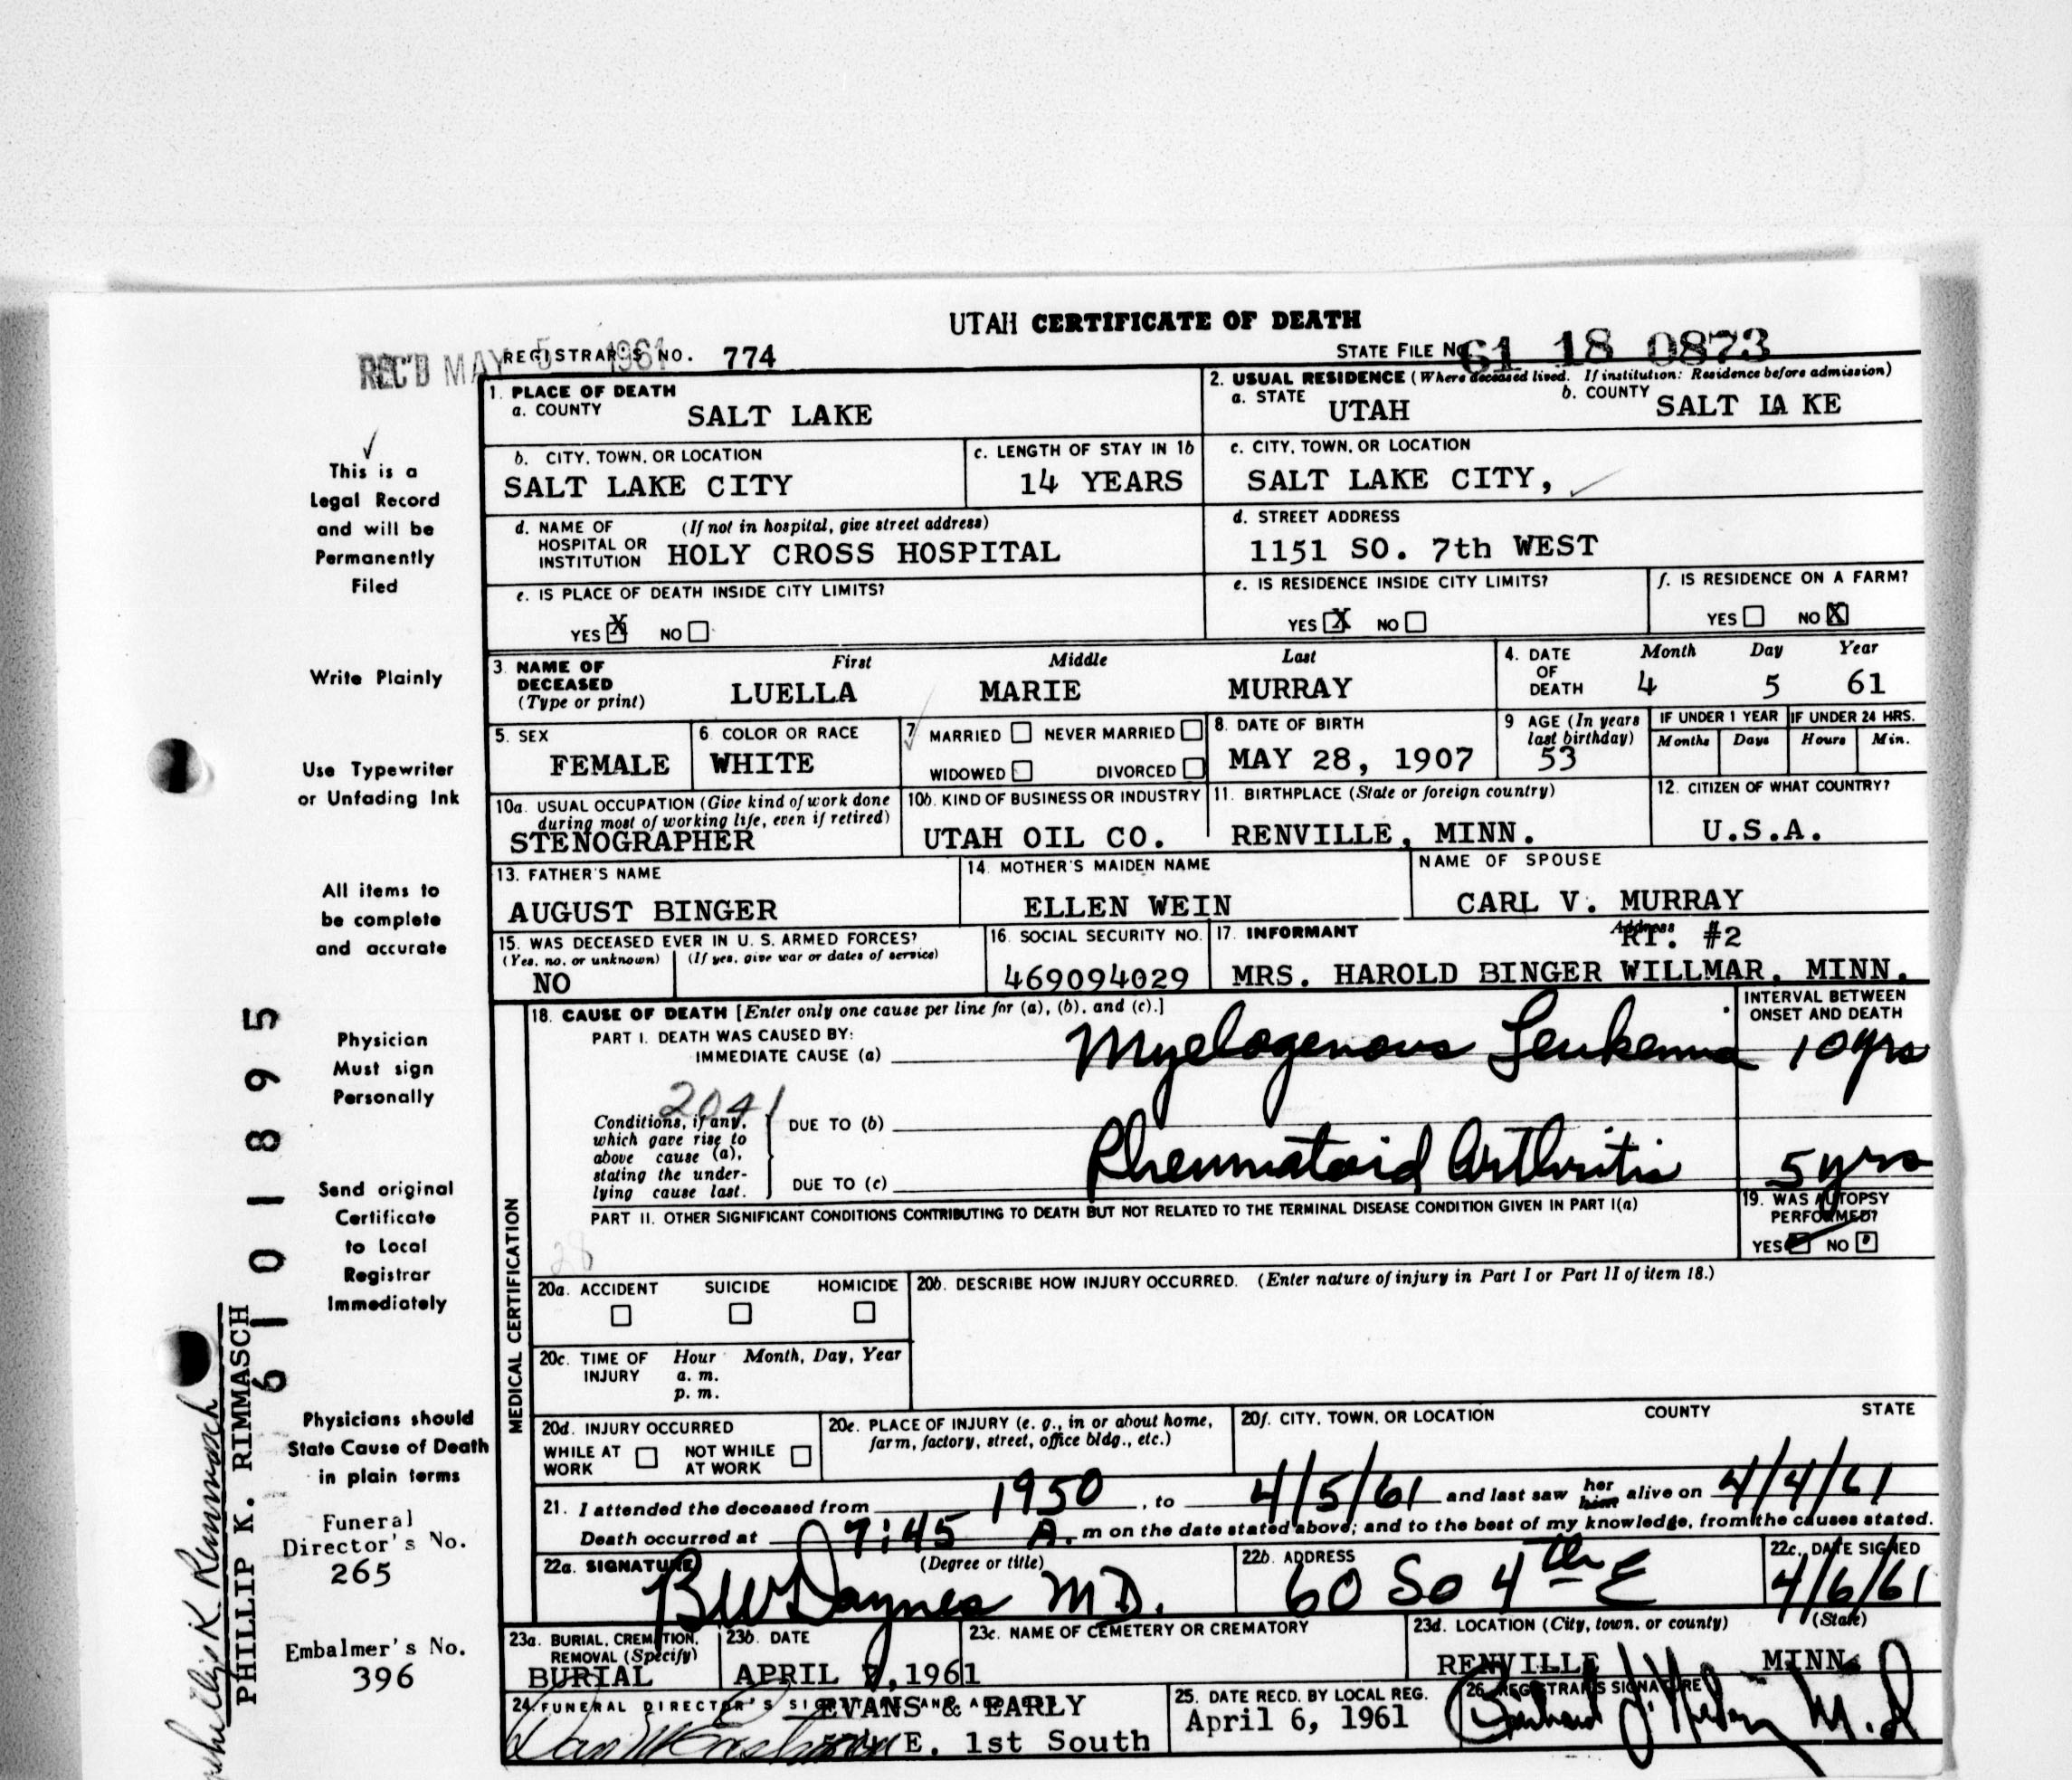 UTAH CERTIFICATE OF DEATH
REC'D MAY 5 1961
REGISTRAR'S NO. 774
STATE FILE NO. 61 18 0873
1. PLACE OF DEATH
a. COUNTY SALT LAKE
2. USUAL RESIDENCE (Where deceased lived. If institution: Residence before admission)
a. STATE UTAH b. COUNTY SALT LA KE
b. CITY, TOWN, OR LOCATION SALT LAKE CITY
c. LENGTH OF STAY IN 1b 14 YEARS
c. CITY, TOWN, OR LOCATION SALT LAKE CITY,
d. NAME OF HOSPITAL OR INSTITUTION (If not in hospital, give street address) HOLY CROSS HOSPITAL
d. STREET ADDRESS 1151 SO. 7th WEST
e. IS PLACE OF DEATH INSIDE CITY LIMITS?
YES X NO
e. IS RESIDENCE INSIDE CITY LIMITS?
YES X NO
f. IS RESIDENCE ON A FARM?
YES NO X
3. NAME OF DECEASED (Type or print)
First Middle Last
LUELLA MARIE MURRAY
4. DATE OF DEATH Month Day Year
4 5 61
5. SEX FEMALE
6. COLOR OR RACE WHITE
7. MARRIED NEVER MARRIED
WIDOWED DIVORCED
8. DATE OF BIRTH MAY 28, 1907
9 AGE (In years last birthday) 53
IF UNDER 1 YEAR Months Days
IF UNDER 24 HRS. Hours Min.
10a. USUAL OCCUPATION (Give kind of work done during most of working life, even if retired)
STENOGRAPHER
10b. KIND OF BUSINESS OR INDUSTRY
UTAH OIL CO.
11. BIRTHPLACE (State or foreign country)
RENVILLE, MINN.
12. CITIZEN OF WHAT COUNTRY?
U.S.A.
13. FATHER'S NAME
AUGUST BINGER
14. MOTHER'S MAIDEN NAME
ELLEN WEIN
NAME OF SPOUSE
CARL V. MURRAY
15. WAS DECEASED EVER IN U. S. ARMED FORCES?
(Yes, no, or unknown) (If yes, give war or dates of service)
NO
16. SOCIAL SECURITY NO.
469094029
17. INFORMANT Address
RT. #2
MRS. HAROLD BINGER WILLMAR, MINN.
MEDICAL CERTIFICATION
18. CAUSE OF DEATH [Enter only one cause per line for (a), (b), and (c).]
INTERVAL BETWEEN ONSET AND DEATH
PART I. DEATH WAS CAUSED BY:
IMMEDIATE CAUSE (a) Myelogenous Leukemia 10 yrs
2041
Conditions, if any, which gave rise to above cause (a), stating the underlying cause last.
DUE TO (b)
DUE TO (c) Rheumatoid Arthritis 5 yrs
PART II. OTHER SIGNIFICANT CONDITIONS CONTRIBUTING TO DEATH BUT NOT RELATED TO THE TERMINAL DISEASE CONDITION GIVEN IN PART I(a)
28
19. WAS AUTOPSY PERFORMED?
YES NO
20a. ACCIDENT SUICIDE HOMICIDE
20b. DESCRIBE HOW INJURY OCCURRED. (Enter nature of injury in Part I or Part II of item 18.)
20c. TIME OF INJURY Hour Month, Day, Year
a. m.
p. m.
20d. INJURY OCCURRED
WHILE AT WORK NOT WHILE AT WORK
20e. PLACE OF INJURY (e. g., in or about home, farm, factory, street, office bldg., etc.)
20f. CITY, TOWN, OR LOCATION COUNTY STATE
21. I attended the deceased from 1950, to 4/5/61 and last saw her him alive on 4/4/61
Death occurred at 7:45 A. m on the date stated above; and to the best of my knowledge, from the causes stated.
22a. SIGNATURE (Degree or title)
BW Daynes M.D.
22b. ADDRESS
60 So 4th E
22c. DATE SIGNED
4/6/61
23a. BURIAL, CREMATION, REMOVAL (Specify)
BURIAL
23b. DATE
APRIL , 1961
23c. NAME OF CEMETERY OR CREMATORY
23d. LOCATION (City, town, or county) (State)
RENVILLE MINN.
24. FUNERAL DIRECTOR'S SIGNATURE AND ADDRESS
EVANS & EARLY
E. 1st South
25. DATE RECD. BY LOCAL REG.
April 6, 1961
26. REGISTRAR'S SIGNATURE
M.D.
This is a
Legal Record
and will be
Permanently
Filed
Write Plainly
Use Typewriter
or Unfading Ink
All items to
be complete
and accurate
Physician
Must sign
Personally
Send original
Certificate
to Local
Registrar
Immediately
Physicians should
State Cause of Death
in plain terms
Funeral
Director's No.
265
Embalmer's No.
396
6101895
PHILLIP K. RIMMASCH